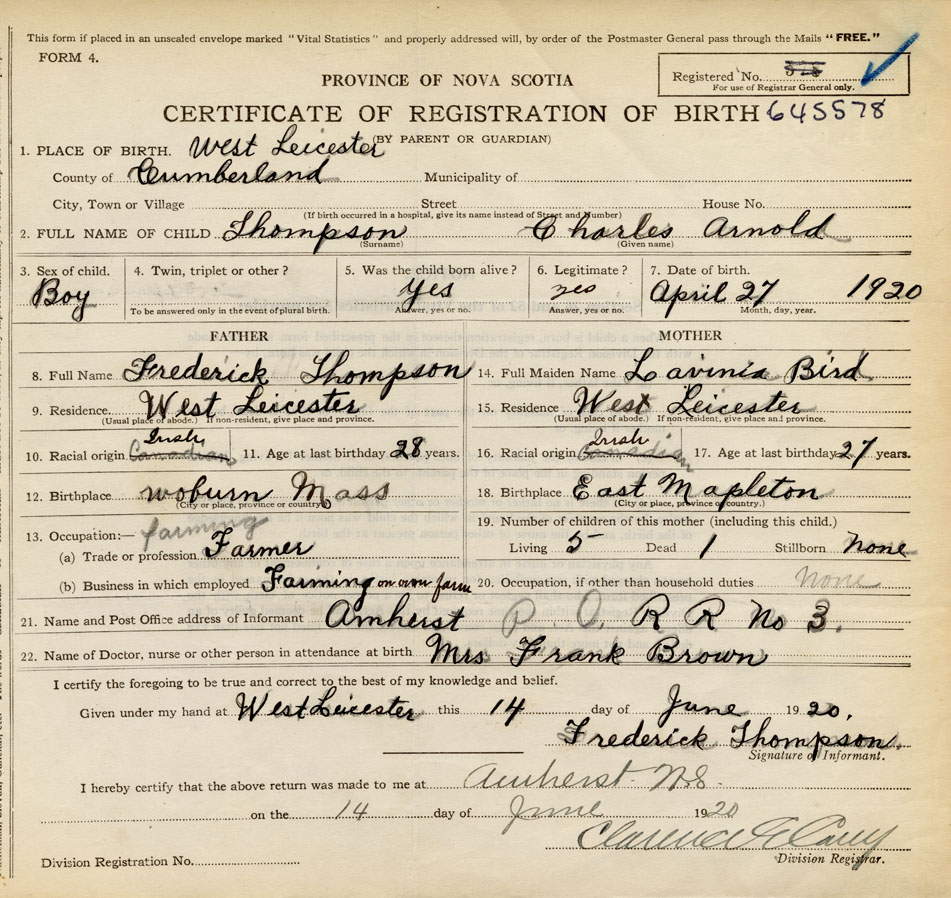 This form if placed in an unsealed envelope marked "Vital Statistics" and properly addressed will, by order of the Postmaster General pass through the Mails "FREE."
FORM 4.
Registered No. 
For use of Registrar General only.
PROVINCE OF NOVA SCOTIA
CERTIFICATE OF REGISTRATION OF BIRTH 645578
(BY PARENT OR GUARDIAN)
1. PLACE OF BIRTH. West Leicester
County of Cumberland Municipality of
City, Town or Village Street House No.
(If birth occurred in a hospital, give its name instead of Street and Number)
2. FULL NAME OF CHILD Thompson Charles Arnold
(Surname) (Given name)
3. Sex of child. 4. Twin, triplet or other? 5. Was the child born alive? 6. Legitimate? 7. Date of birth.
Boy yes yes April 27 1920
To be answered only in the event of plural birth. Answer, yes or no. Answer, yes or no. Month, day, year.
FATHER MOTHER
8. Full Name Frederick Thompson 14. Full Maiden Name Lavinia Bird
9. Residence West Leicester 15. Residence West Leicester
(Usual place of abode.) If non-resident, give place and province. (Usual place of abode.) If non-resident, give place and province.
Irish Irish
10. Racial origin Canadian 11. Age at last birthday 28 years. 16. Racial origin Canadian 17. Age at last birthday 27 years.
12. Birthplace woburn Mass 18. Birthplace East Mapleton
(City or place, province or country) (City or place, province or country.)
13. Occupation:— farming 19. Number of children of this mother (including this child.)
(a) Trade or profession Farmer Living 5 Dead 1 Stillborn None
(b) Business in which employed Farming on own farm 20. Occupation, if other than household duties None
21. Name and Post Office address of Informant Amherst P.O. R R No 3.
22. Name of Doctor, nurse or other person in attendance at birth Mrs Frank Brown
I certify the foregoing to be true and correct to the best of my knowledge and belief.
Given under my hand at West Leicester this 14 day of June 1920.
Frederick Thompson
Signature of Informant.
I hereby certify that the above return was made to me at Amherst N.S.
on the 14 day of June 1920
Clarence
Division Registrar.
Division Registration No.